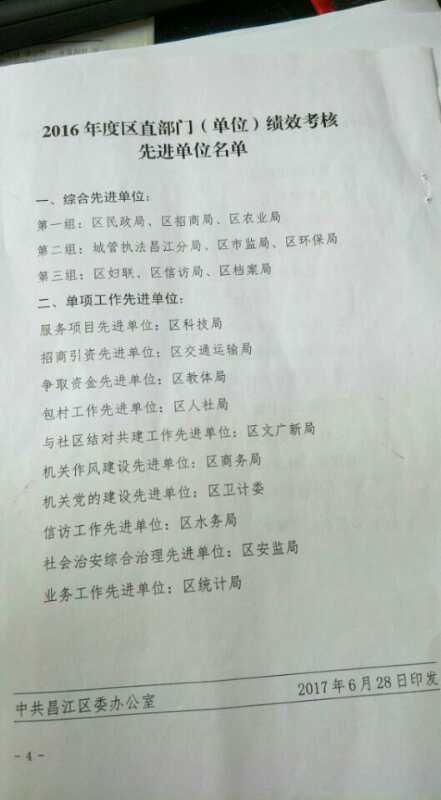 2016 年度区直部门（单位）绩效考核
先进单位名单
一、综合先进单位：
第一组：区民政局、区招商局、区农业局
第二组：城管执法昌江分局、区市监局、区环保局
第三组：区妇联、区信访局、区档案局
二、单项工作先进单位：
服务项目先进单位：区科技局
招商引资先进单位：区交通运输局
争取资金先进单位：区教体局
包村工作先进单位：区人社局
与社区结对共建工作先进单位：区文广新局
机关作风建设先进单位：区商务局
机关党的建设先进单位：区卫计委
信访工作先进单位：区水务局
社会治安综合治理先进单位：区安监局
业务工作先进单位：区统计局
中共昌江区委办公室
2017 年 6 月 28 日印发
- 4 -